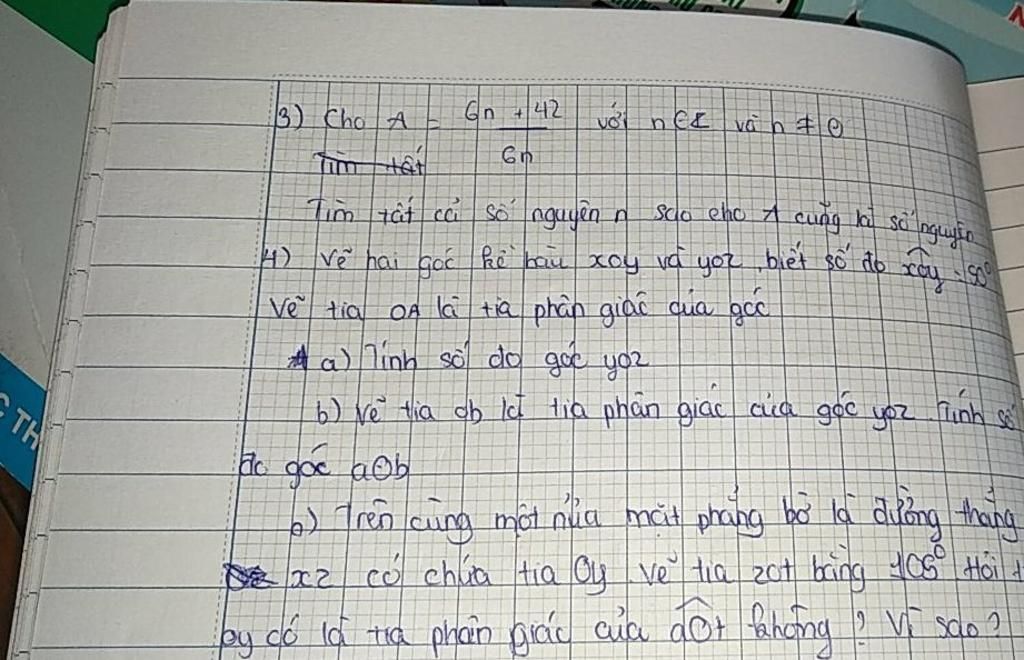 3) Cho A = 6n + 42 / 6n với n ∈ Z và n ≠ 0
Tìm tất
Tìm tất cả số nguyên n sao cho A cũng là số nguyên
4) Vẽ hai góc kề bàu xoy và yoz, biết số đo xoy = 50°
Vẽ tia OA là tia phân giác của góc
a) Tính số đo góc yoz
b) Vẽ tia ob là tia phân giác của góc yoz Tính số
đo góc aOb
b) Trên cùng một nửa mặt phẳng bờ là đường thẳng
xz có chứa tia Oy vẽ tia zot bằng 105° Hỏi t
oy có là tia phân giác của aOt không? Vì sao?
C TH